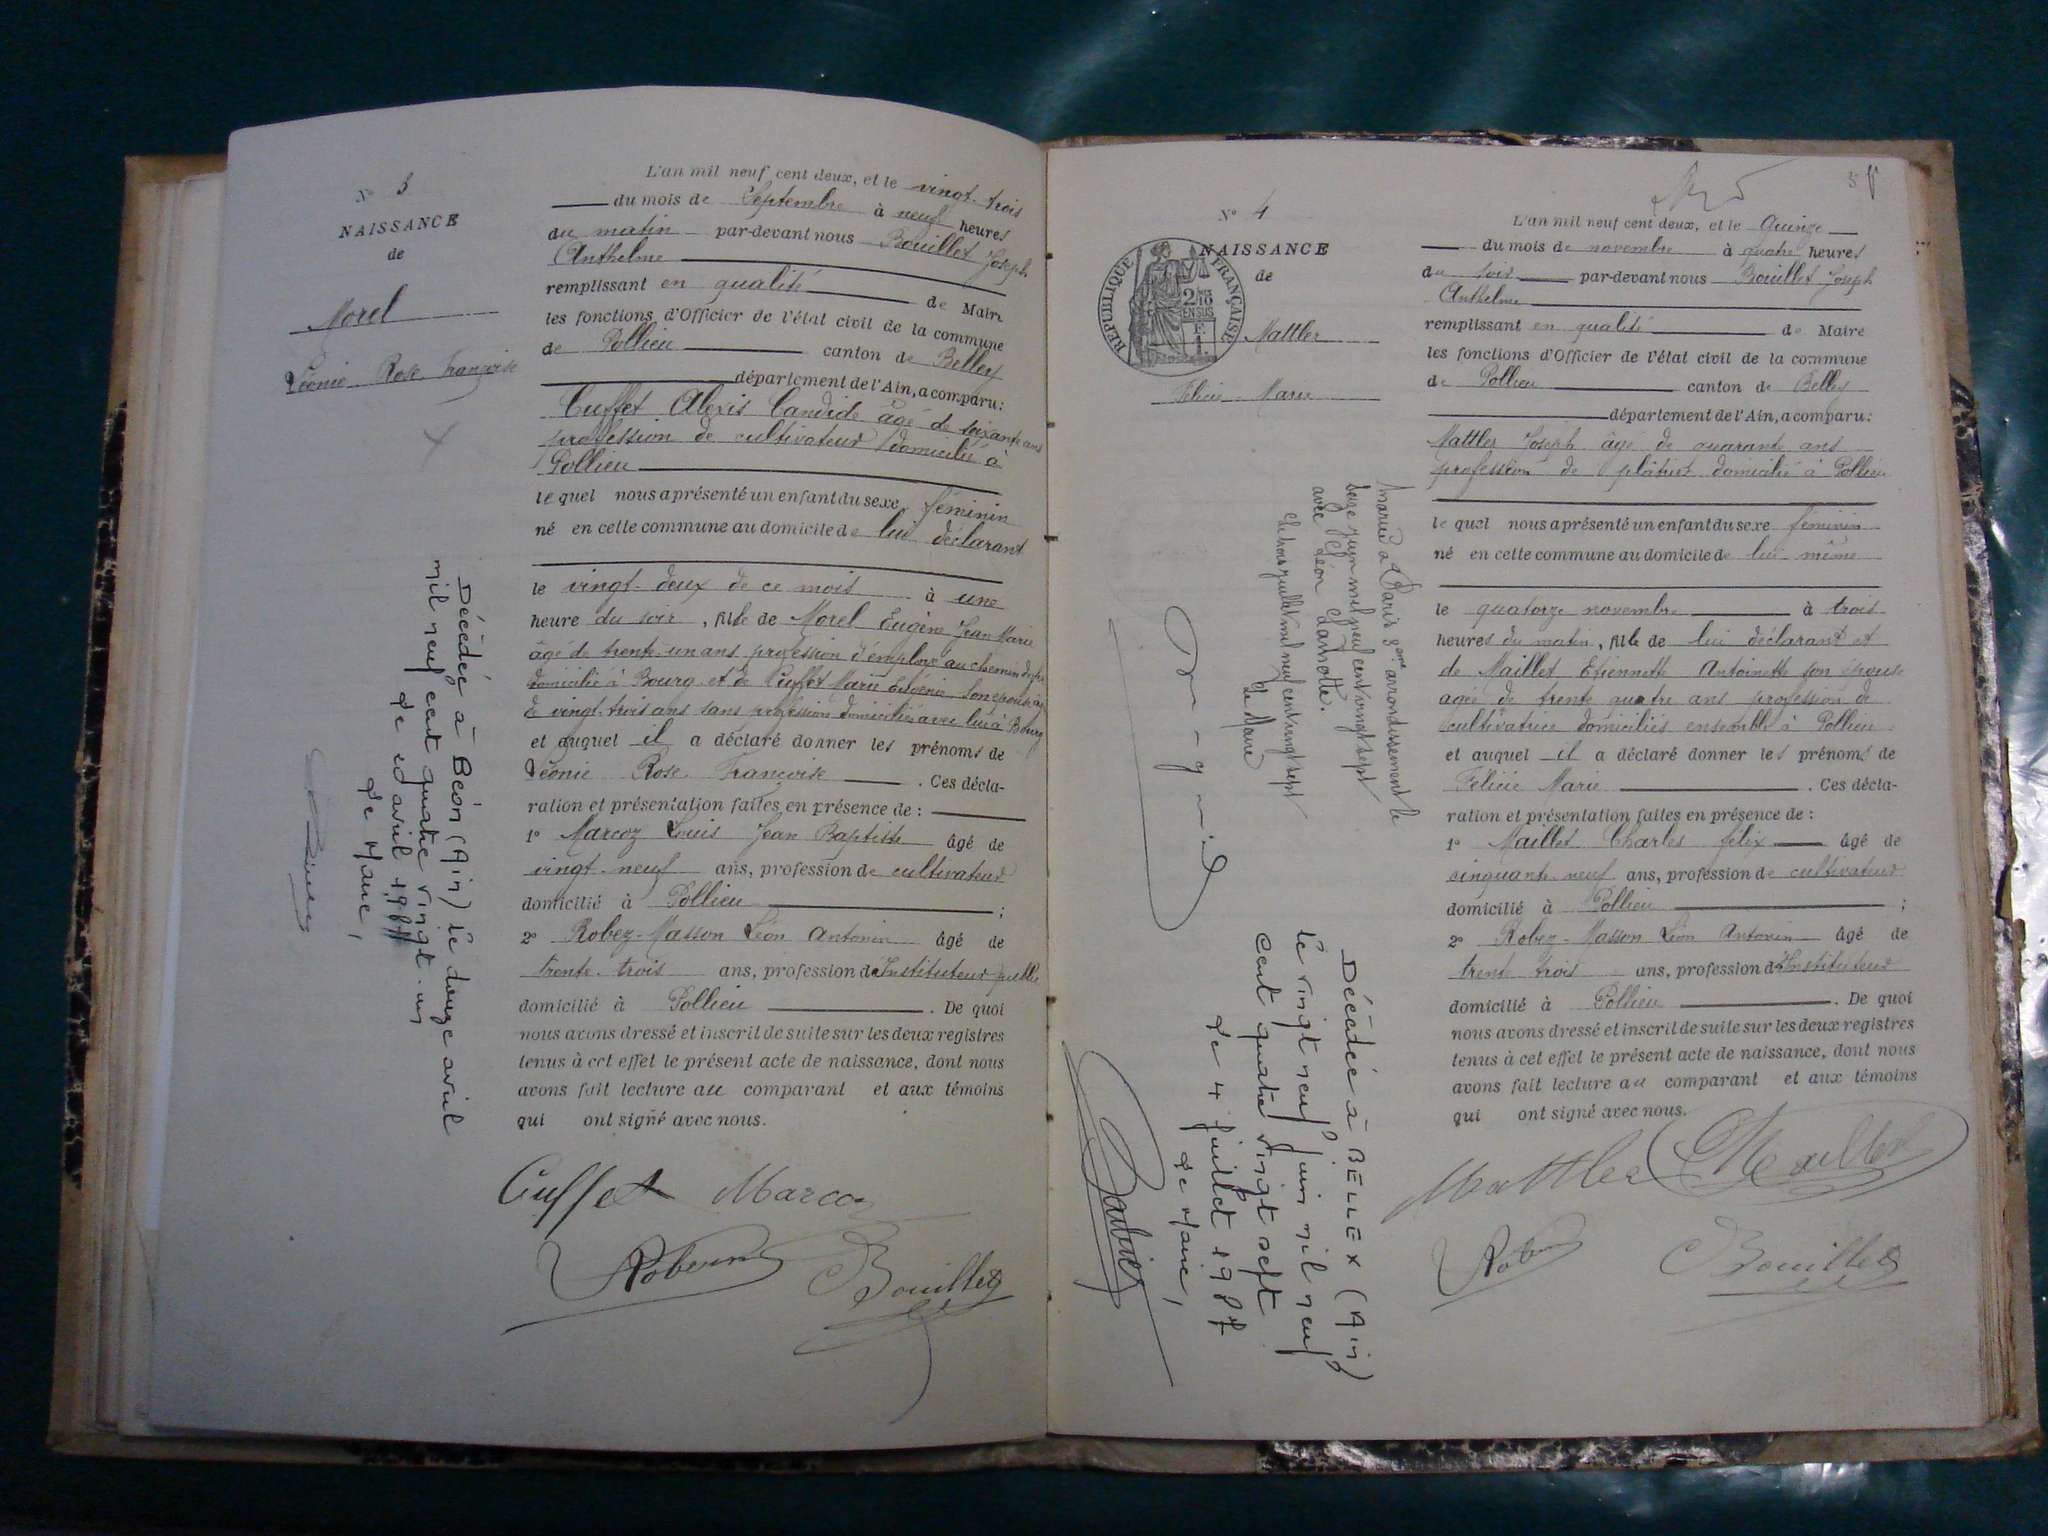 N° 3
NAISSANCE
de
Morel
Léonie Rose Françoise
L'an mil neuf cent deux, et le vingt-trois
du mois de Septembre à neuf heures
du matin par-devant nous Bouillet Joseph
Anthelme
remplissant en qualité de Maire
les fonctions d'Officier de l'état civil de la commune
de Pollieu canton de Belley
département de l'Ain, a comparu:
Cuffet Alexis Candide âgé de soixante ans
profession de cultivateur domicilié à
Pollieu
le quel nous a présenté un enfant du sexe féminin
né en cette commune au domicile de lui déclarant
le vingt-deux de ce mois à une
heure du soir, fille de Morel Eugène Jean Marie
âgé de trente-un ans profession d'employé au chemin de fer
domicilié à Bourg et de Cuffet Marie Eugénie son épouse âgée
de vingt-trois ans sans profession domiciliée avec lui à Bourg
et auquel il a déclaré donner les prénoms de
Léonie Rose Françoise. Ces décla-
ration et présentation faites en présence de :
1° Marcoz Louis Jean Baptiste âgé de
vingt-neuf ans, profession de cultivateur
domicilié à Pollieu ;
2° Robez-Masson Léon Antonin âgé de
trente-trois ans, profession de Instituteur public
domicilié à Pollieu. De quoi
nous avons dressé et inscrit de suite sur les deux registres
tenus à cet effet le présent acte de naissance, dont nous
avons fait lecture au comparant et aux témoins
qui ont signé avec nous.
Cuffet Marcoz
Bouillet
Décédée à Béon (Ain) le douze avril
mil neuf cent quatre vingt-un
Le Maire,
N° 4
NAISSANCE
de
RÉPUBLIQUE FRANÇAISE
2/10 EN SUS
Mattler
Félicie Marie
L'an mil neuf cent deux, et le quinze
du mois de novembre à quatre heures
du soir par-devant nous Bouillet Joseph
Anthelme
remplissant en qualité de Maire
les fonctions d'Officier de l'état civil de la commune
de Pollieu canton de Belley
département de l'Ain, a comparu:
Mattler Joseph âgé de quarante ans
profession de plâtrier domicilié à Pollieu
le quel nous a présenté un enfant du sexe féminin
né en cette commune au domicile de lui-même
le quatorze novembre à trois
heures du matin, fille de lui déclarant et
de Maillet Etiennette Antoinette son épouse
agée de trente quatre ans profession de
cultivatrice domiciliés ensemble à Pollieu
et auquel il a déclaré donner les prénoms de
Félicie Marie. Ces décla-
ration et présentation faites en présence de :
1° Maillet Charles félix âgé de
cinquante-neuf ans, profession de cultivateur
domicilié à Pollieu ;
2° Robez-Masson Léon Antonin âgé de
trente trois ans, profession de Instituteur
domicilié à Pollieu. De quoi
nous avons dressé et inscrit de suite sur les deux registres
tenus à cet effet le présent acte de naissance, dont nous
avons fait lecture au comparant et aux témoins
qui ont signé avec nous.
Mattler Maillet
Bouillet
Mariée à Paris arrondissement le
juin mil neuf cent vingt sept
avec Léon Lamotte.
juillet mil neuf cent vingt sept
Le Maire
Décédée à BELLEY (Ain)
le vingt neuf juin mil neuf
cent quatre vingt sept
Le 4 juillet 1987
Le Maire,